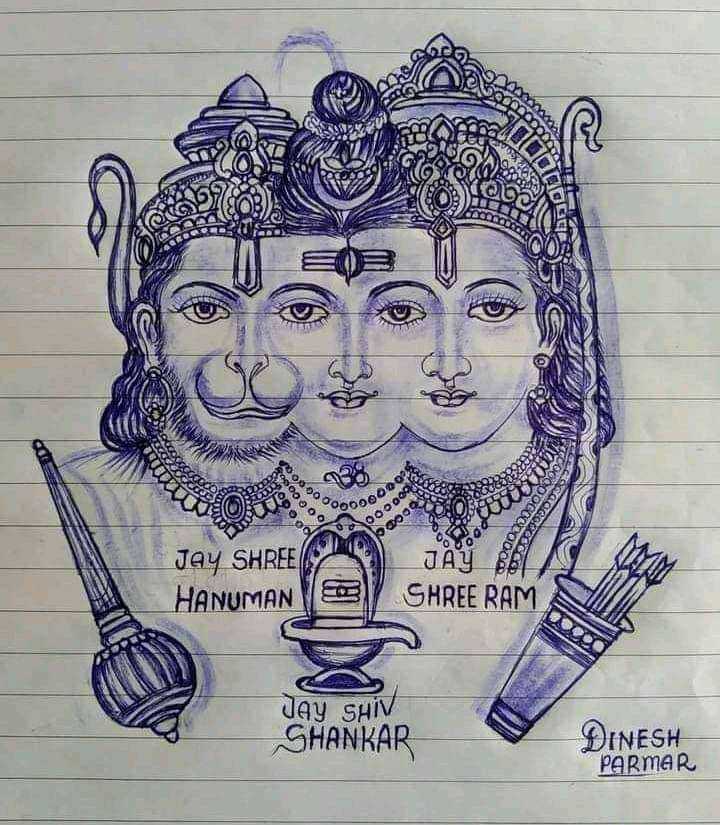 ॐ
JAY SHREE
HANUMAN
JAY
SHREE RAM
JAY SHIV
SHANKAR
DINESH
PARMAR